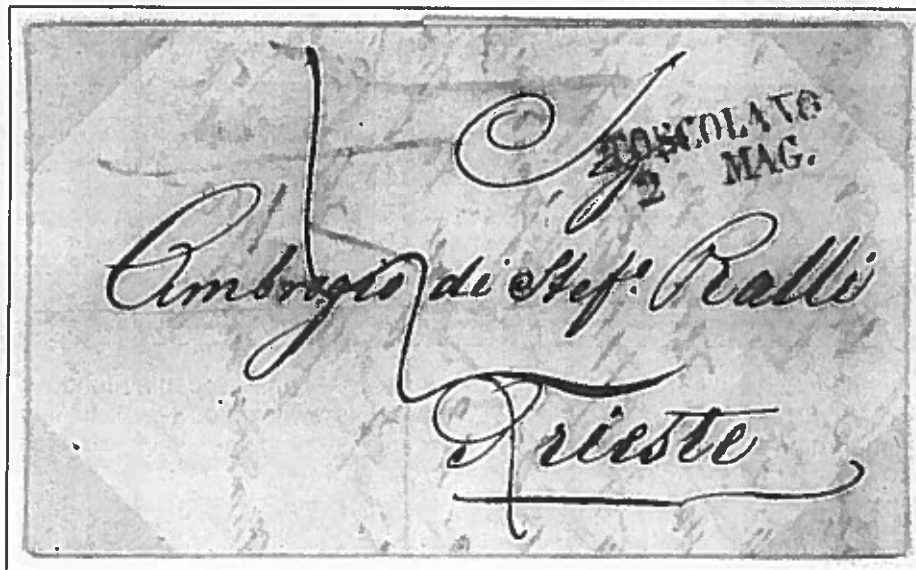 Sg.
TOSCOLANO
2 MAG.
Ambrogio di Stef.° Ralli
Trieste